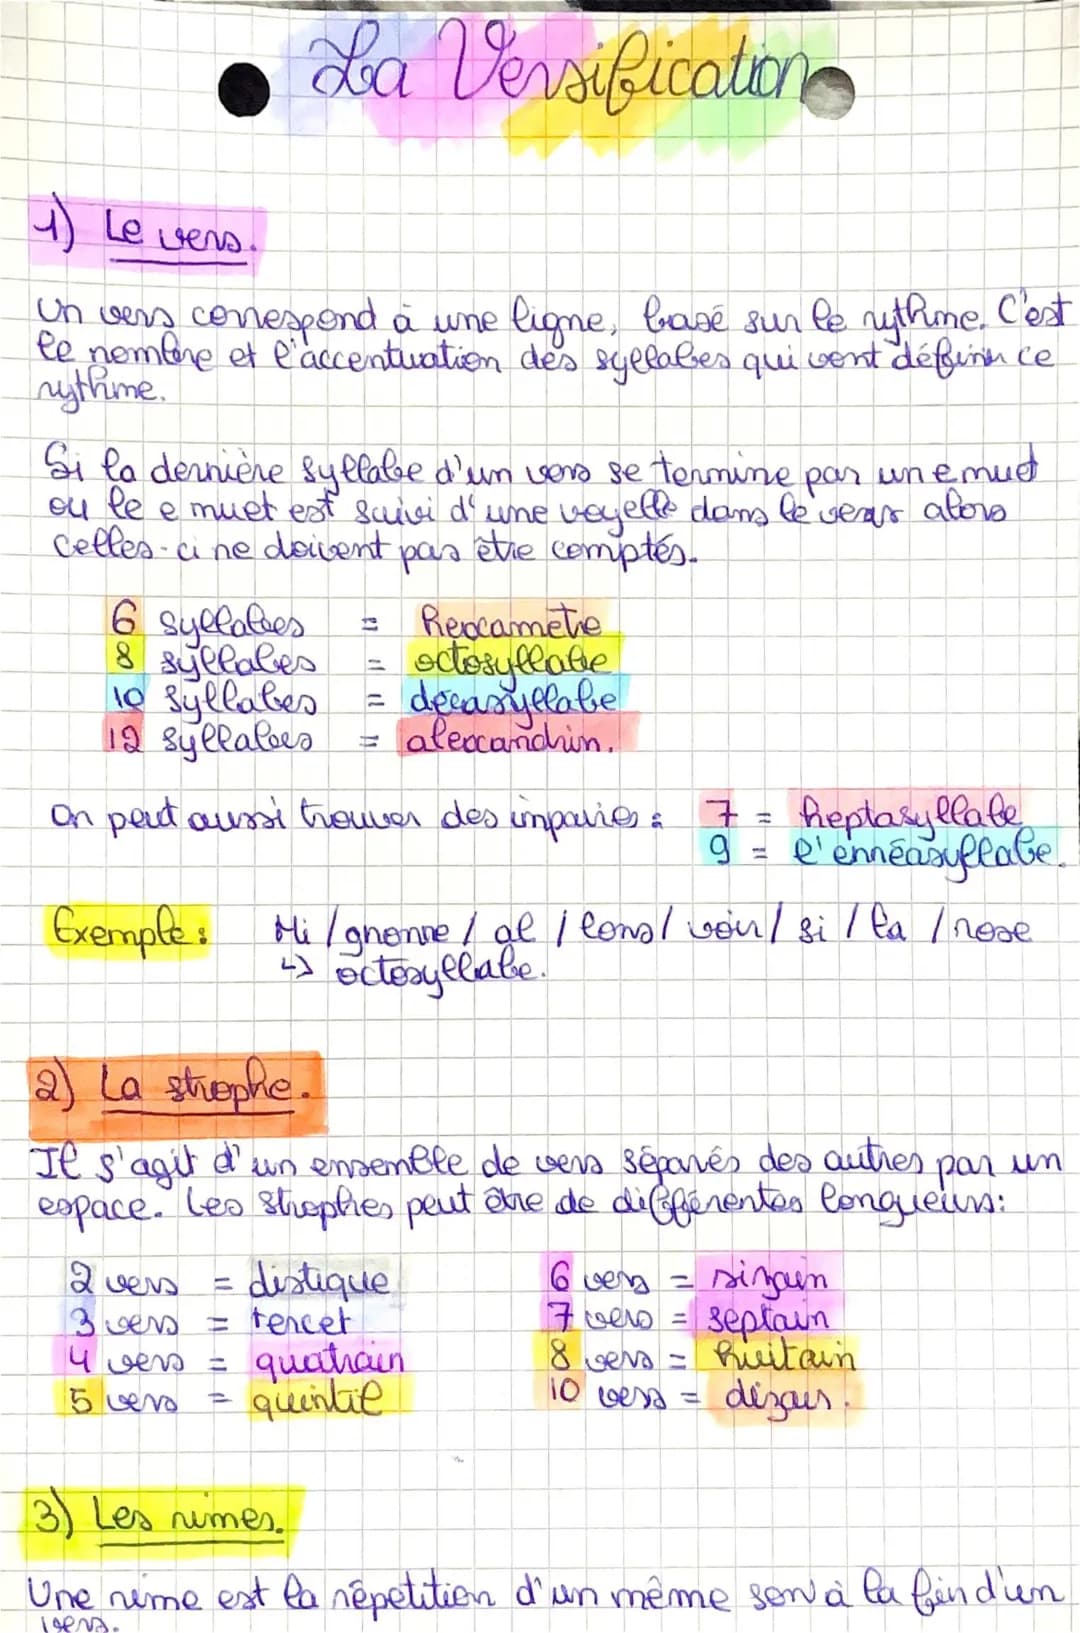 La Versification
1) Le vers.
Un vers correspond à une ligne, basé sur le rythme. C'est
le nombre et l'accentuation des syllabes qui vont définir ce
rythme.
Si la dernière syllabe d'un vers se termine par un e muet
ou le e muet est suivi d'une voyelle dans le vers alors
celles-ci ne doivent pas être comptés.
6 syllabes = hexamètre
8 syllabes = octosyllabe
10 syllabes = décasyllabe
12 syllabes = alexandrin.
On peut aussi trouver des impaires : 7 = heptasyllabe
9 = l'ennéasyllabe.
Exemple : Mi / gnonne / al / lons / voir / si / la / rose
↳ octosyllabe.
2) La strophe.
Il s'agit d'un ensemble de vers séparés des autres par un
espace. Les strophes peut être de différentes longueurs :
2 vers = distique 6 vers = sizain
3 vers = tercet 7 vers = septain
4 vers = quatrain 8 vers = huitain
5 vers = quintil 10 vers = dizais.
3) Les rimes.
Une rime est la répétition d'un même son à la fin d'un
vers.